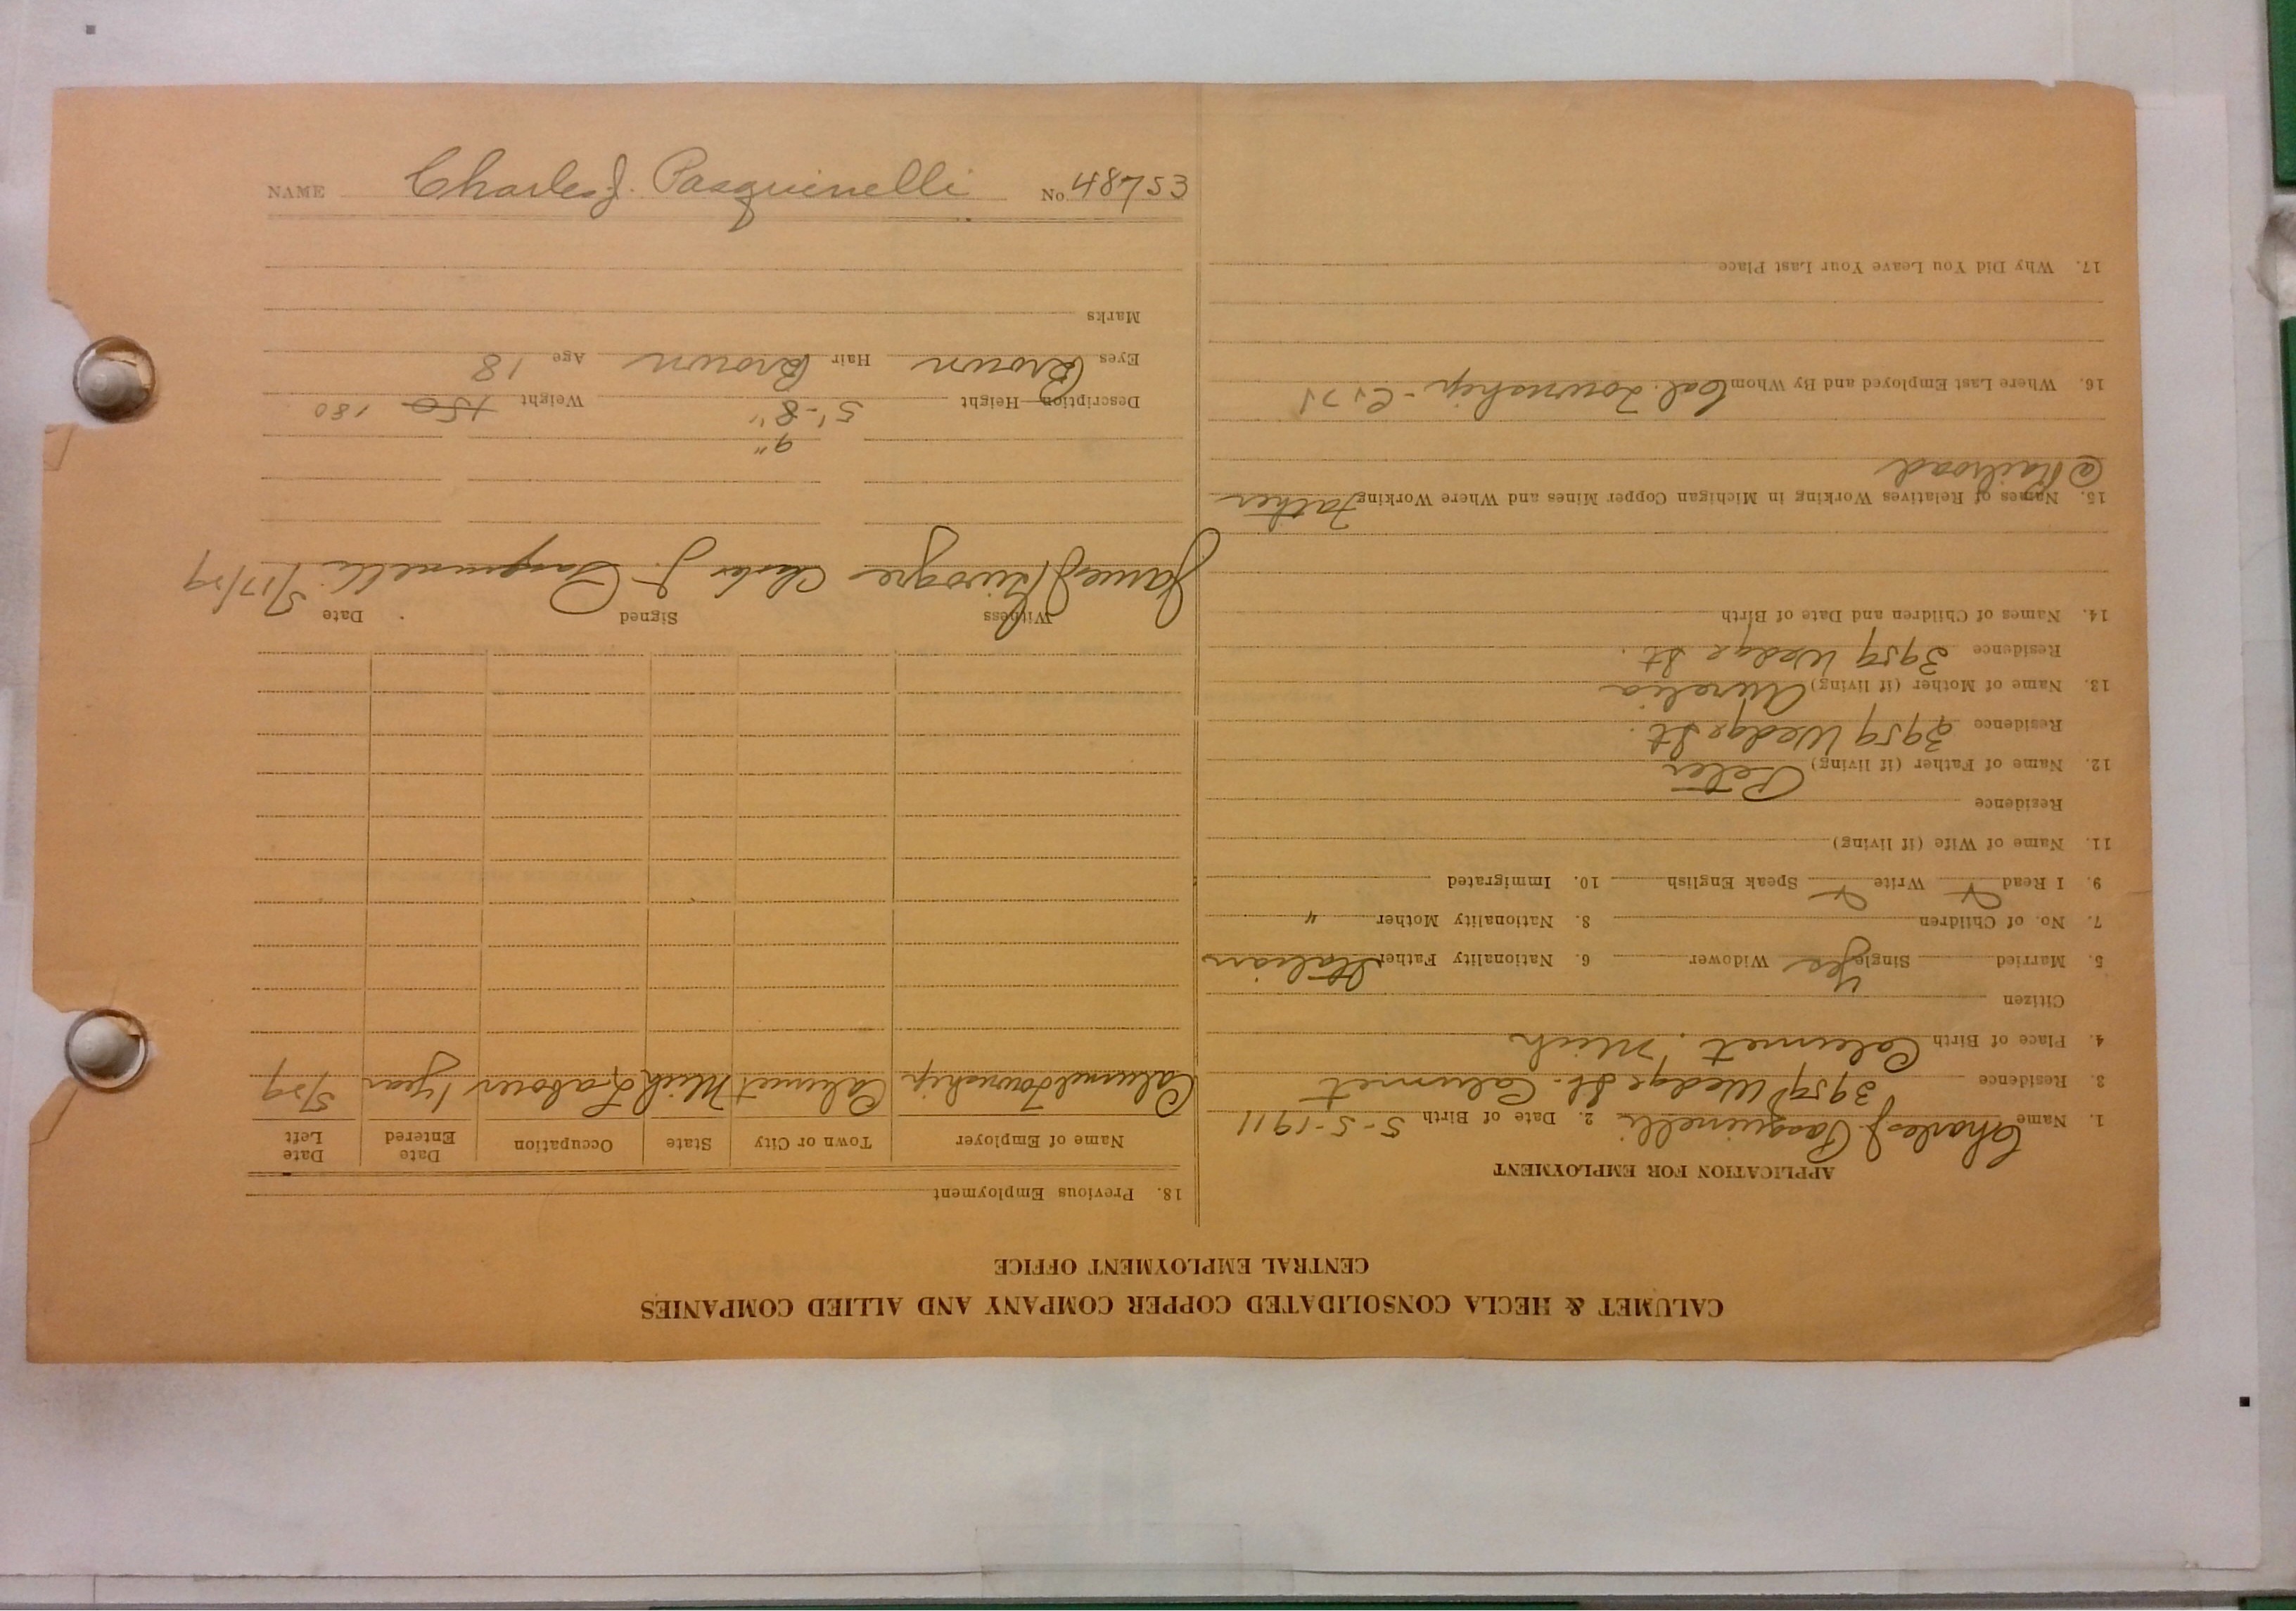 CALUMET & HECLA CONSOLIDATED COPPER COMPANY AND ALLIED COMPANIES
CENTRAL EMPLOYMENT OFFICE
APPLICATION FOR EMPLOYMENT
1. Name Charles J. Pasquinelli 2. Date of Birth 5-5-1911
3. Residence 3959 Wedge St. Calumet
4. Place of Birth Calumet, Mich
Citizen
5. Married Single Yes Widower 6. Nationality Father Italian
7. No. of Children 8. Nationality Mother "
9. I Read Write Speak English 10. Immigrated
11. Name of Wife (if living)
Residence
12. Name of Father (if living) Peter
Residence 3959 Wedge St.
13. Name of Mother (if living) Aurelia
Residence 3959 Wedge St.
14. Names of Children and Date of Birth
15. Names of Relatives Working in Michigan Copper Mines and Where Working Father
@ Railroad
16. Where Last Employed and By Whom Cal. Township -
17. Why Did You Leave Your Last Place
18. Previous Employment
Name of Employer Town or City State Occupation Date Entered Date Left
Calumet Township Calumet Mich Labour 1 year 5/29
Witness Signed Date
James Charles J. Pasquinelli 5/17/29
9"
Description Height 5'-8" Weight 150 180
Eyes Brown Hair Brown Age 18
Marks
NAME Charles J. Pasquinelli No. 48753